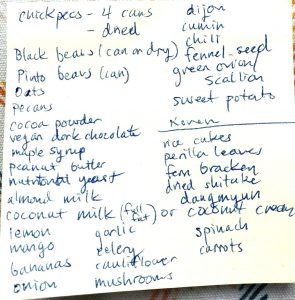 chickpeas - 4 cans
- dried
Black beans (can or dry)
Pinto beans (can)
Oats
pecans
cocoa powder
vegan dark chocolate
maple syrup
peanut butter
nutritional yeast
almond milk
coconut milk (full fat) or coconut cream
lemon
mango
bananas
onion
garlic
celery
cauliflower
mushrooms
dijon
cumin
chili
fennel-seed
green onion/
scallion
sweet potato
Korean
rice cakes
perilla leaves
fern bracken
dried shitake
dangmyun
spinach
carrots